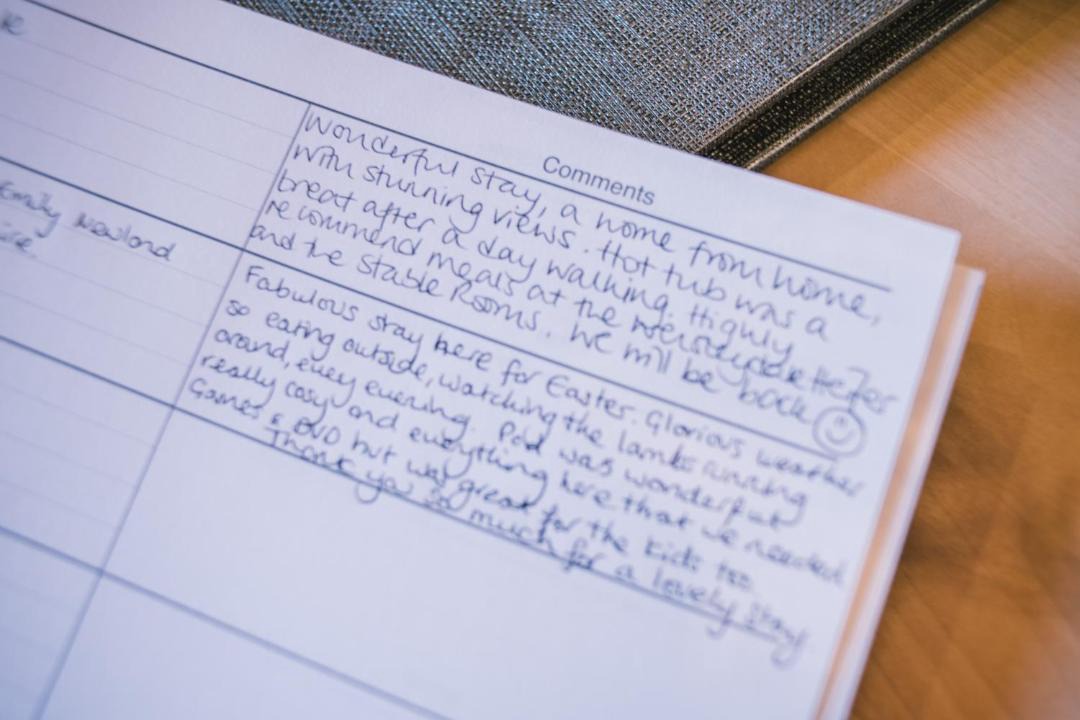 Comments
Wonderful stay, a home from home,
with stunning views. Hot tub was a
treat after a day walking. Highly
recommend meals at the
and the Stable Rooms. We will be back
Emily Newland
Fabulous stay here for Easter. Glorious weather
so eating outside, watching the lambs running
around, every evening. Pod was wonderful
really cosy and everything here that we needed
Games & DVD but was great for the kids too.
Thank you so much for a lovely stay